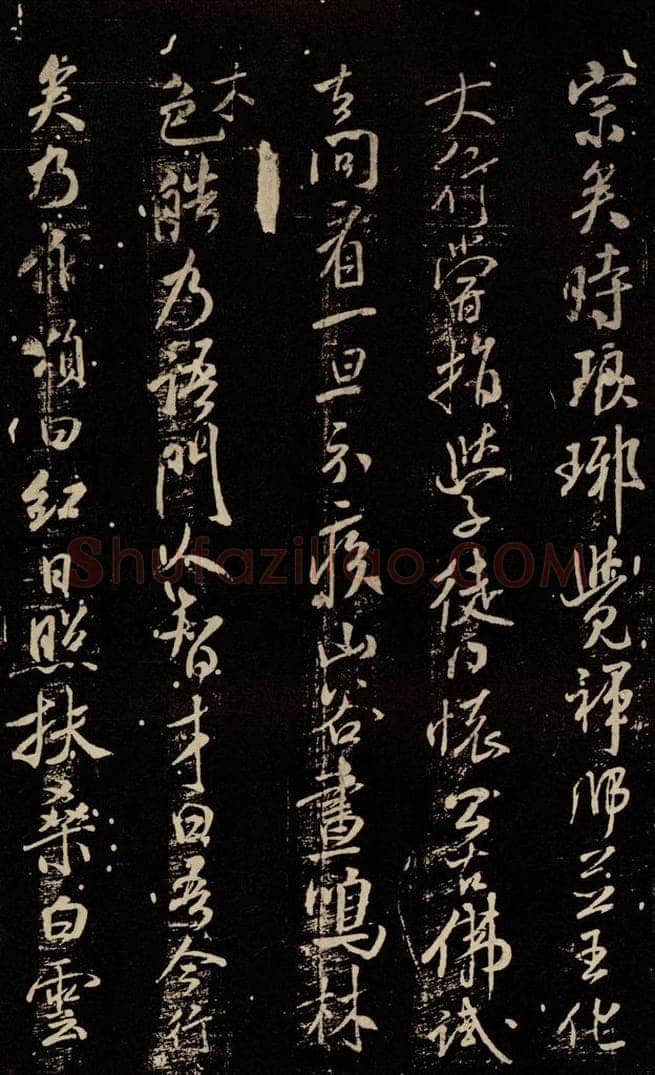 宗矣時琅琊覺禪師王化
大行嘗指學徒曰懷公古佛試
去問看一旦示疾山谷晝鳴林
木
色皓為語門人智才曰吾今行
矣乃作頌曰紅日照扶桑白雲
Shufaziliao.COM